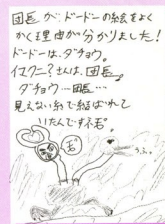 団長が、ドードーの絵をよく
かく理由が分かりました!
ドードーは、ダチョウ。
イマクニ?さんは、団長。
ダチョウ…団長…
見えない糸で結ばれて
いたんですネ。
うふ。